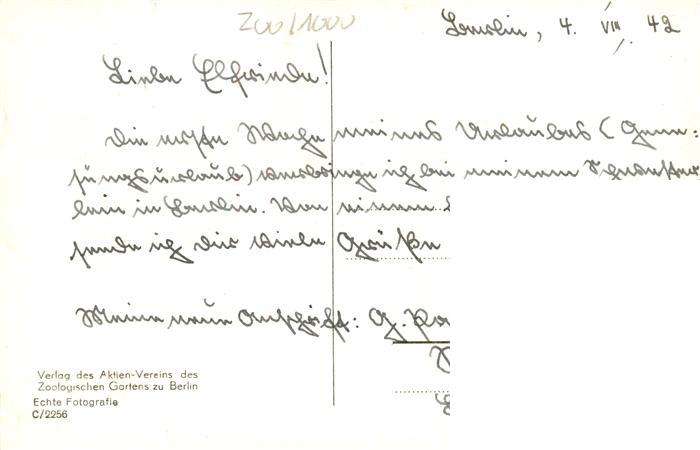 Zoo/1000
Berlin, 4. VIII. 42
Liebe Elfriede!
Die erste Woche meines Urlaubes (Gene-
sungsurlaub) verbringe ich bei meinem Schwester-
lein in Berlin. Von einem
sende ich Dir viele Grüße
Meine neue Anschrift: G.
Verlag des Aktien-Vereins des
Zoologischen Gartens zu Berlin
Echte Fotografie
C/2256